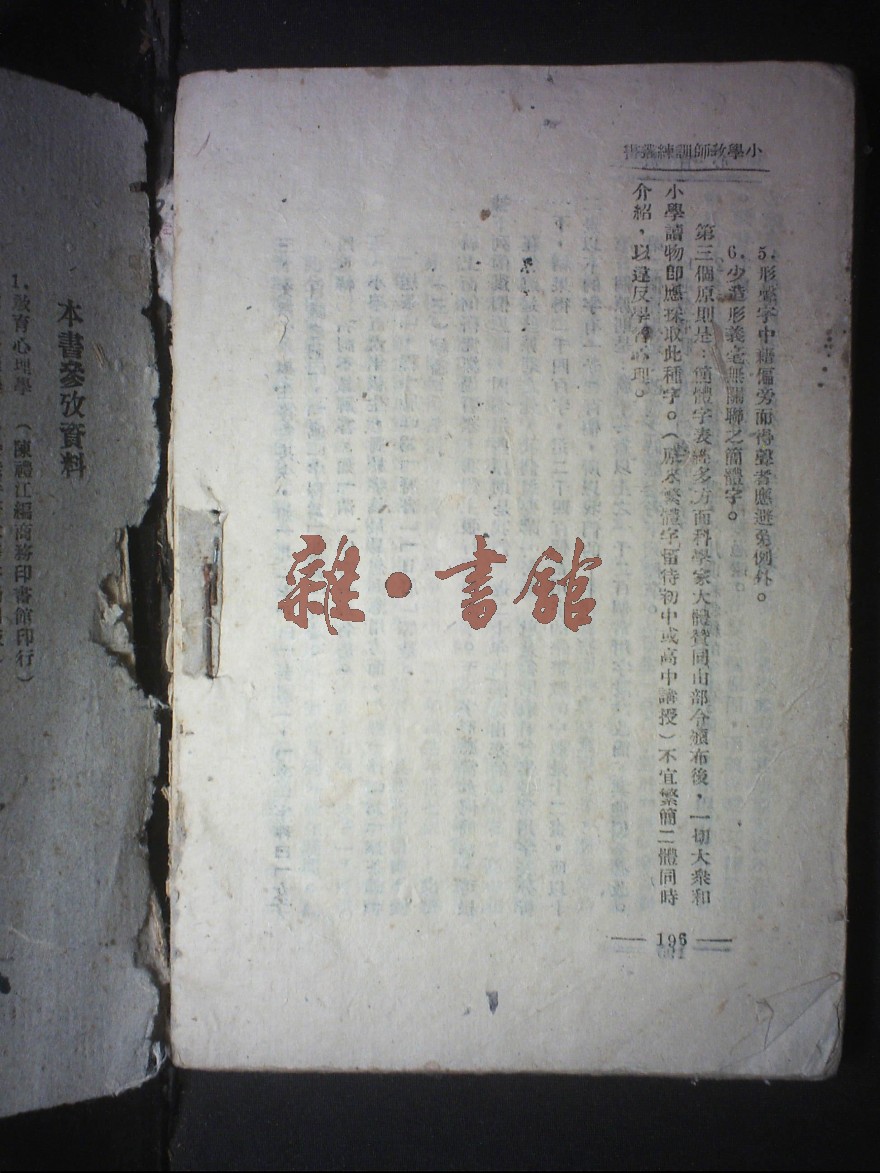 小學敎師訓練叢書
5.形聲字中藉偏旁而得聲者應避免例外。
6.少造形義毫無關聯之簡體字。
第三個原則是：簡體字表經多方面科學家大體贊同由部令頒布後，一切大衆和
小學讀物卽應採取此種字。（原來繁體字留待初中或高中講授）不宜繁簡二體同時
介紹，以違反學習心理。
196
雜·書館
本書參攷資料
1.敎育心理學 （陳禮江編商務印書館印行）